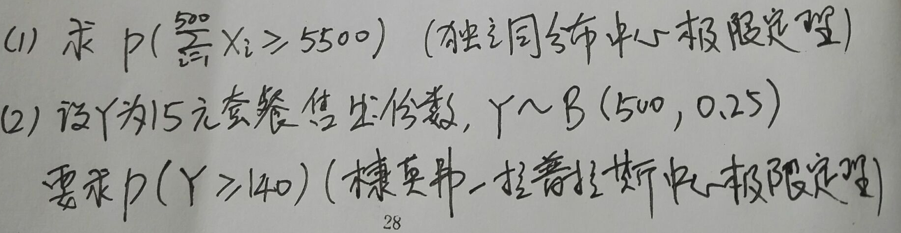 (1) 求 P(∑_{i=1}^{500} X_i ≥ 5500) (独立同分布中心极限定理)
(2) 设Y为15元套餐售出份数, Y～B(500, 0.25)
要求P(Y≥140)(棣莫弗-拉普拉斯中心极限定理)
28